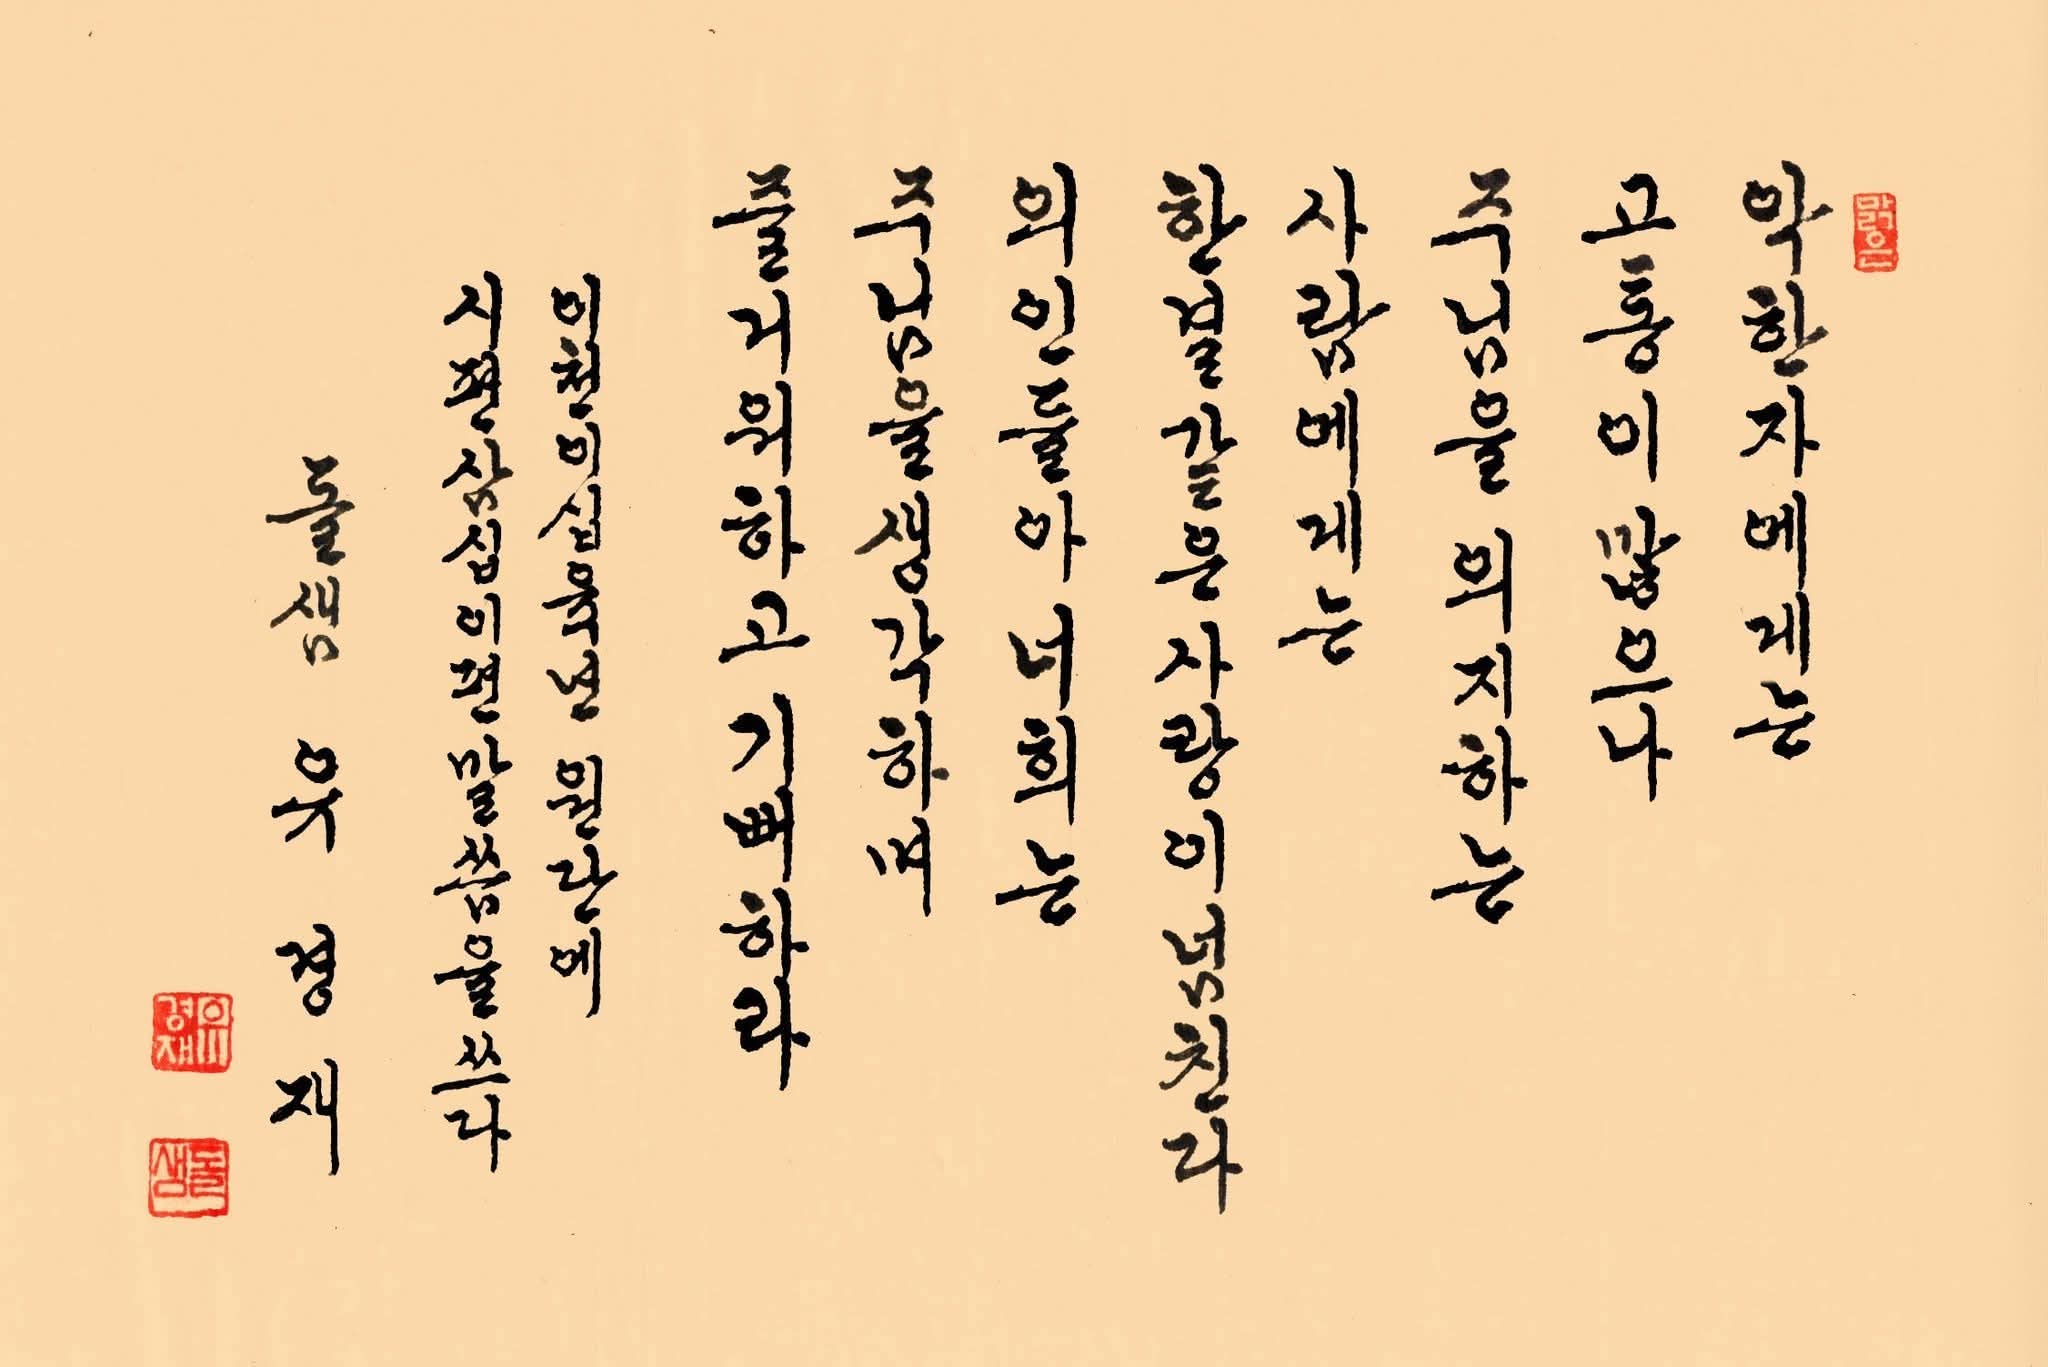 맑은
악한자에게는
고통이 많으나
주님을 의지하는
사람에게는
한결같은 사랑이 넘친다
의인들아 너희는
주님을 생각하며
즐거워하고 기뻐하라
이천이십육년 원단에
시편삼십이편 말씀을 쓰다
돌샘 유경재
유경재
돌샘